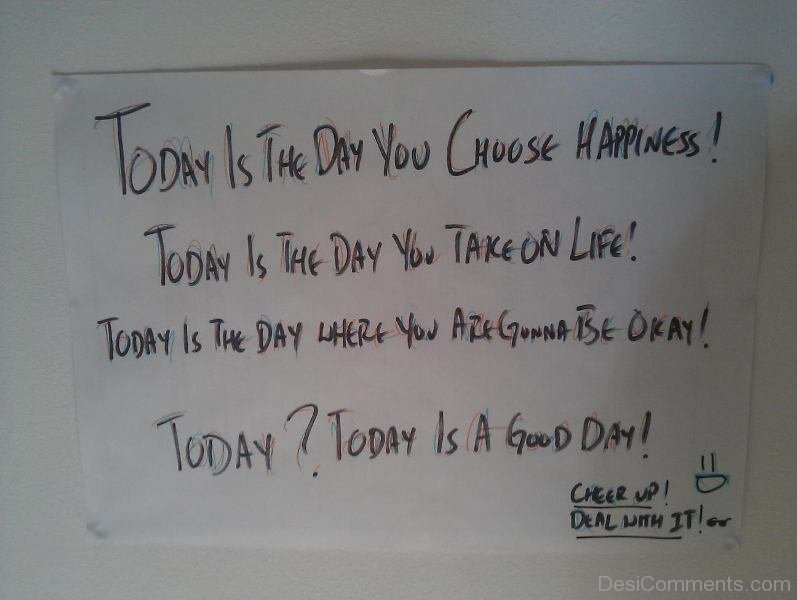 Today Is The Day You Choose Happiness!
Today Is The Day You Take On Life!
Today Is The Day Where You Are Gonna Be Okay!
Today? Today Is A Good Day!
Cheer Up!
Deal With It! or
DesiComments.com